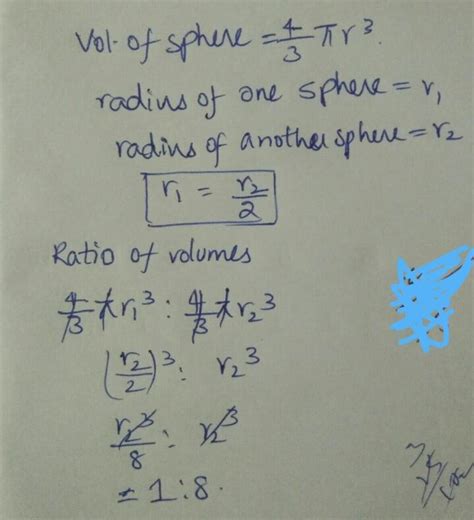 Vol. of sphere = 4/3 πr³.
radius of one sphere = r₁
radius of another sphere = r₂
r₁ = r₂/2
Ratio of volumes
4/3 πr₁³ : 4/3 πr₂³
(r₂/2)³ : r₂³
r₂³/8 : r₂³
= 1:8.